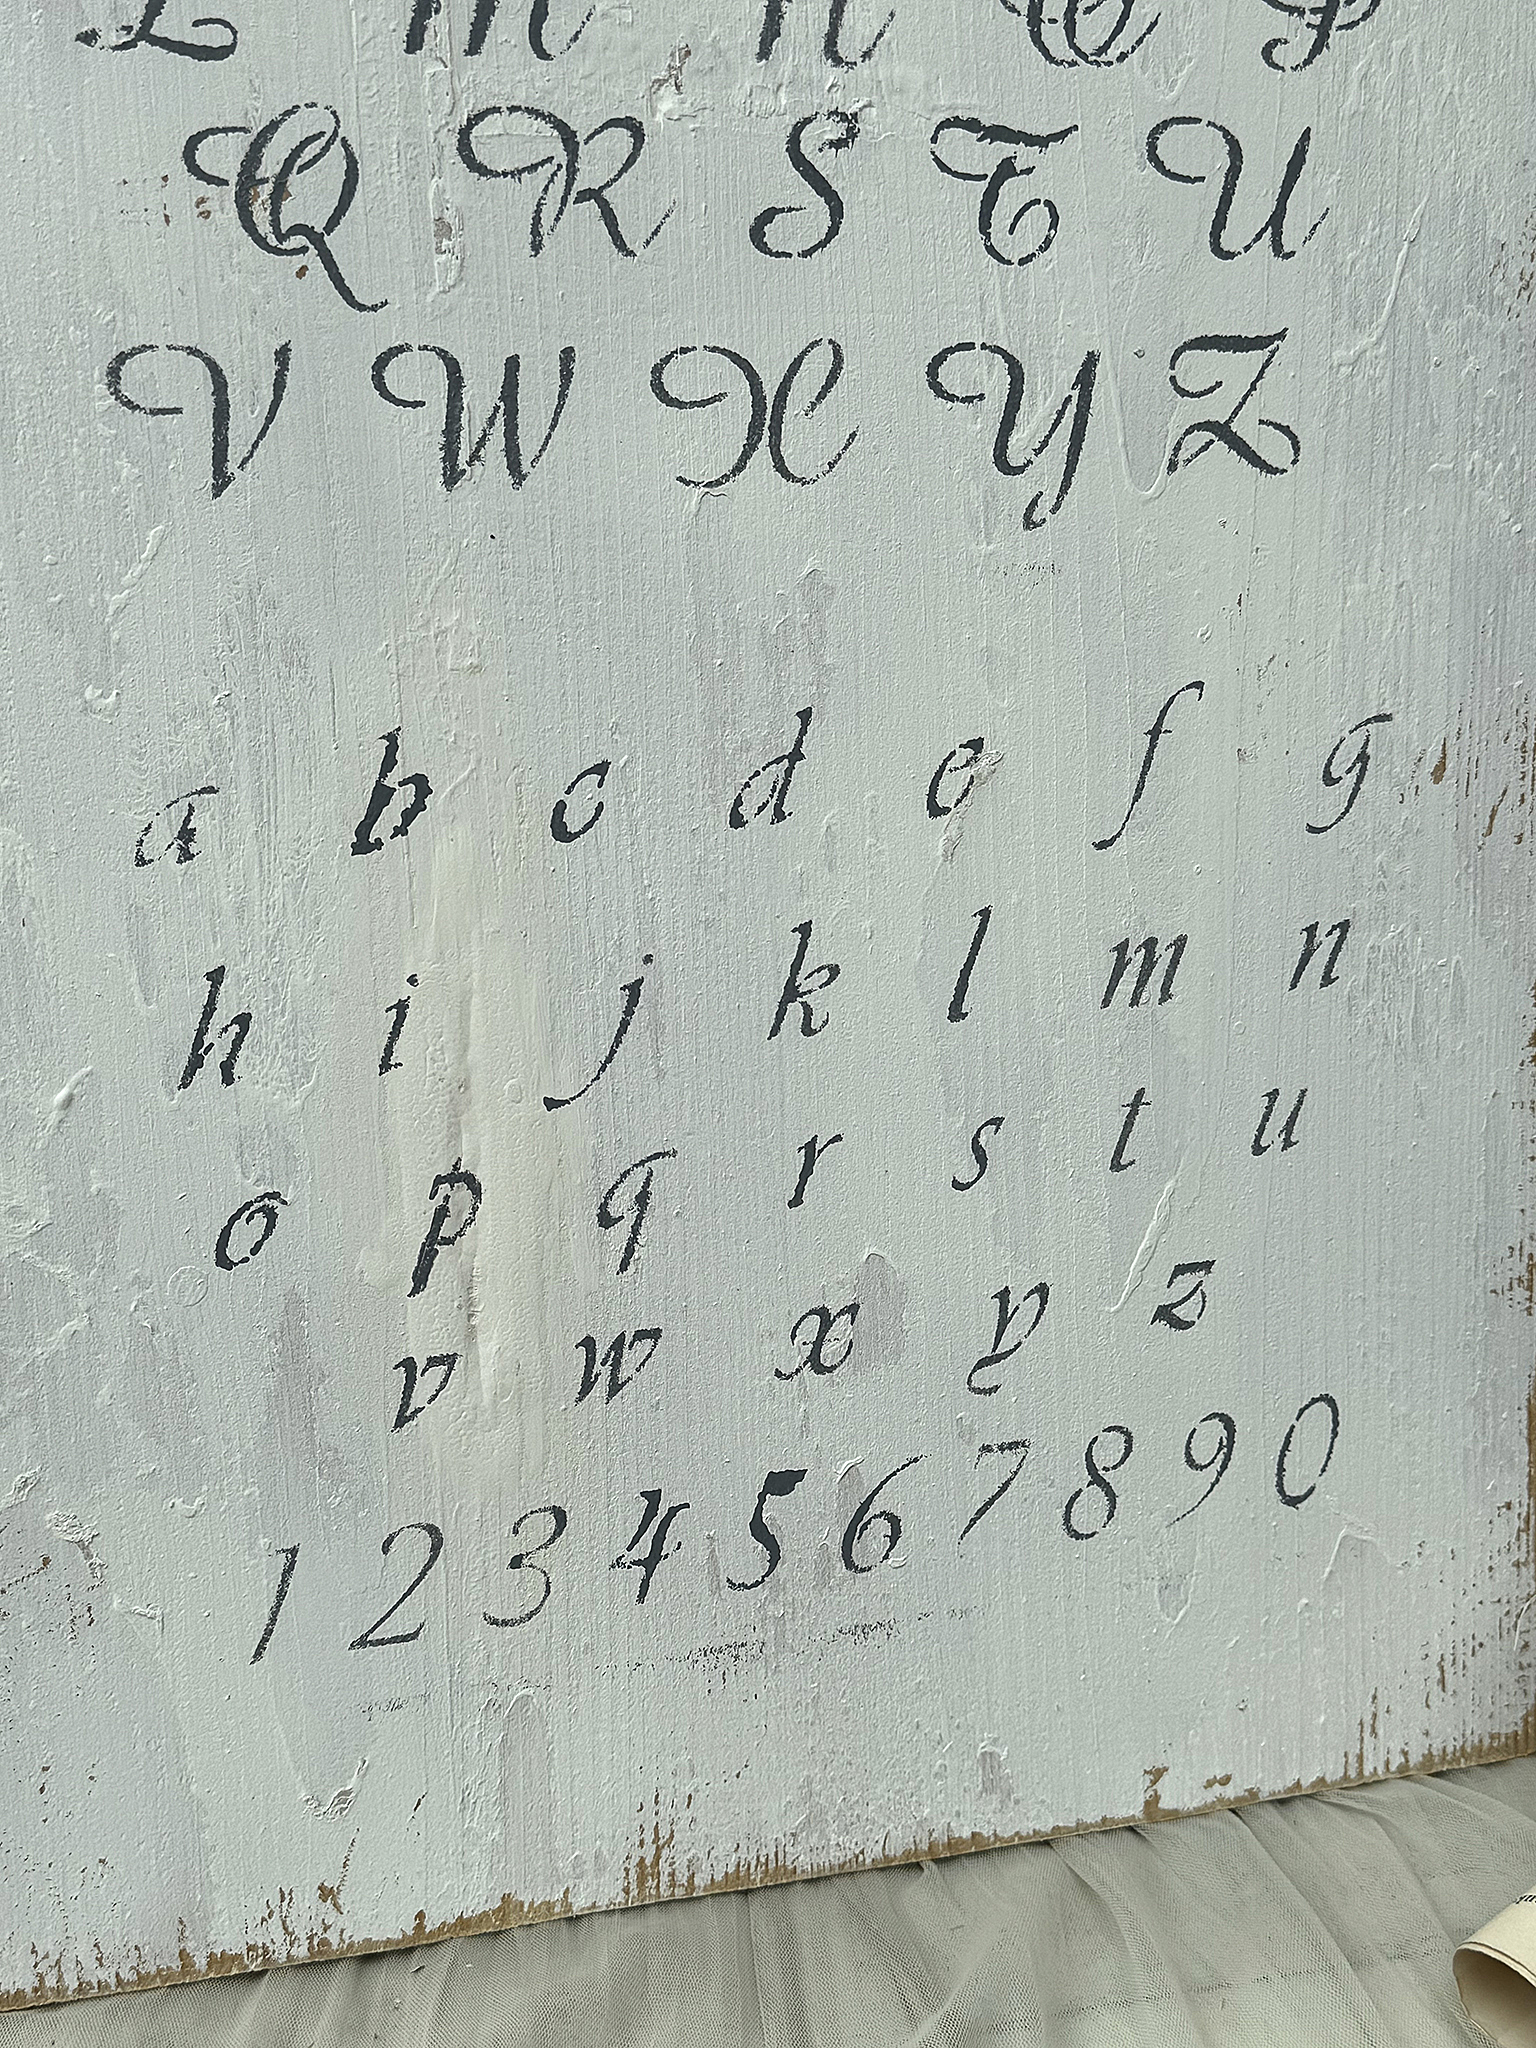 L M N O P
Q R S T U
V W X Y Z
a b c d e f g
h i j k l m n
o p q r s t u
v w x y z
1 2 3 4 5 6 7 8 9 0